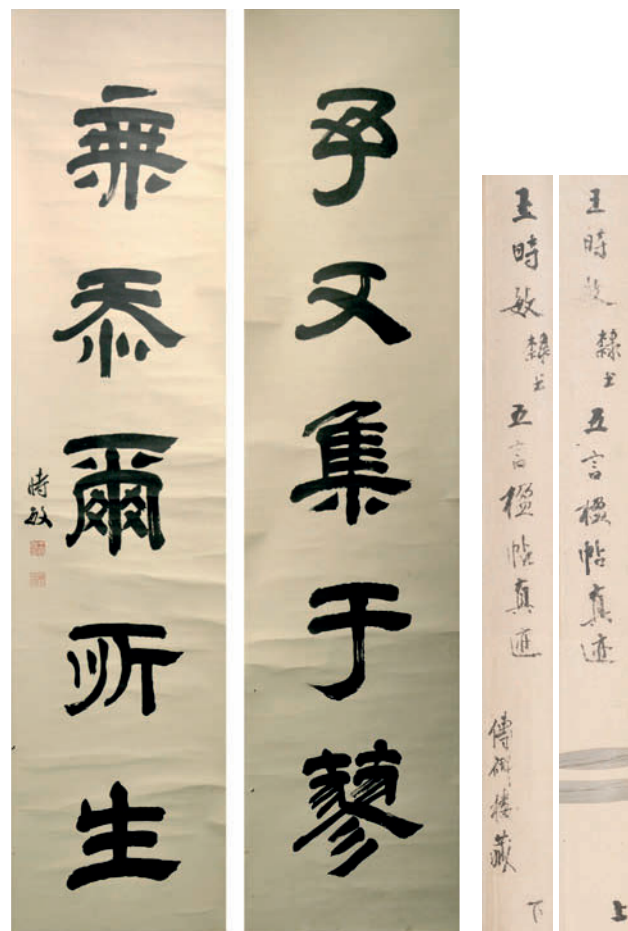 予又集于蓼
無忝爾所生
時敏
王時敏隸書五言楹帖真迹
上
王時敏隸書五言楹帖真迹
傳硯樓藏
下